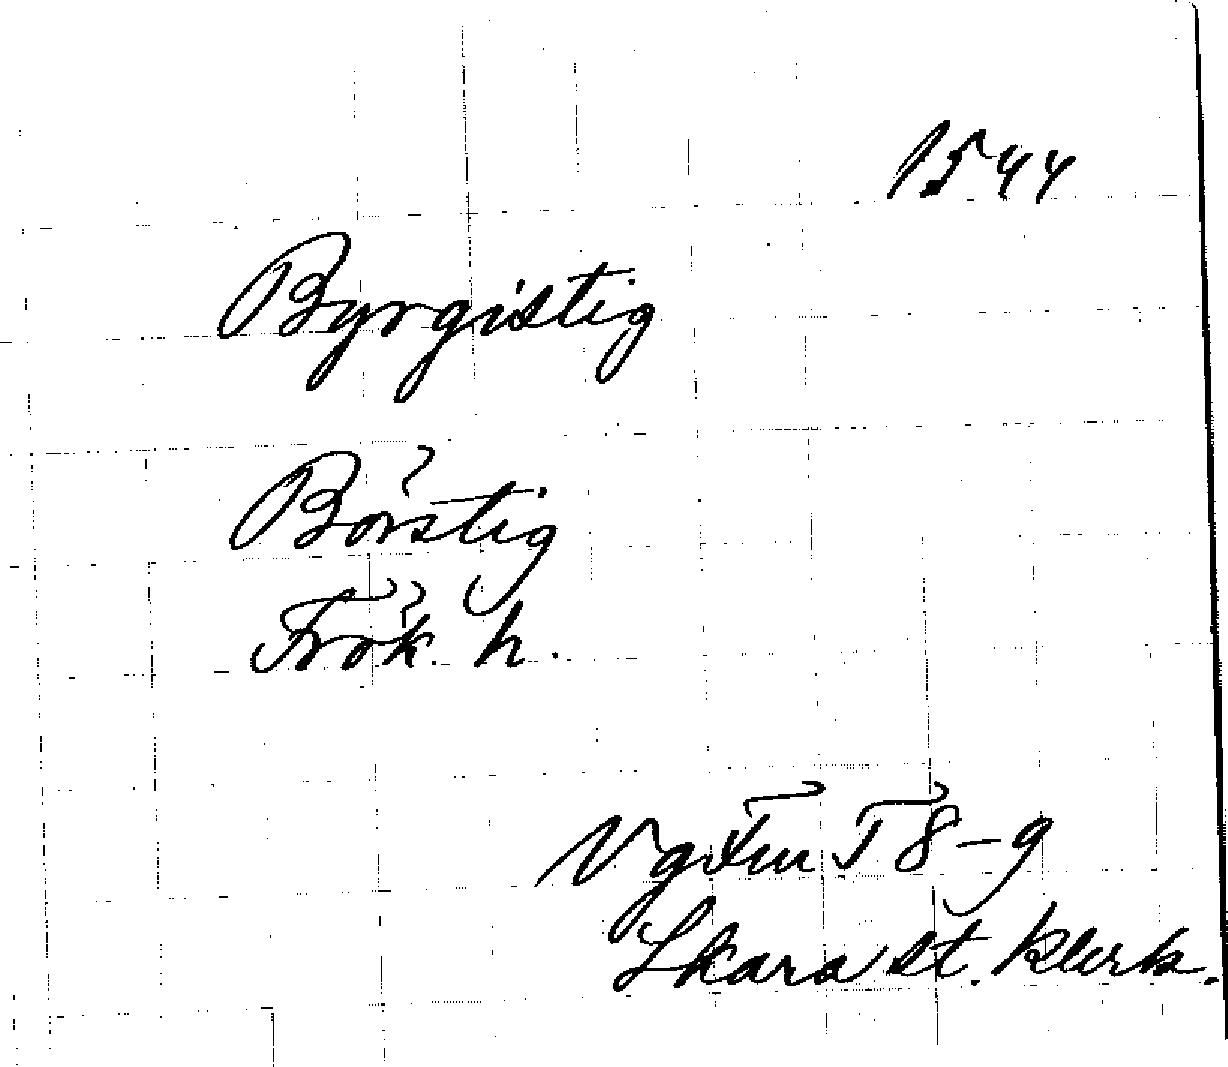 1544
Byrgistig
Börstig
Frök. h.
Vg Fru T 8-9
Skara st. klerk.